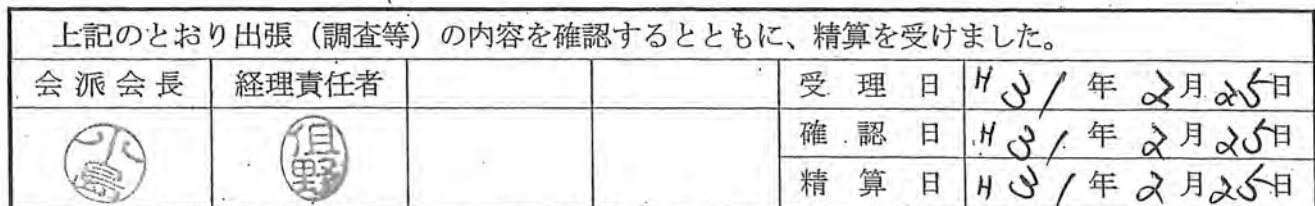 上記のとおり出張（調査等）の内容を確認するとともに、精算を受けました。
会派会長 経理責任者 受理日 H31年2月25日
確認日 H31年2月25日
小島 俱野 精算日 H31年2月25日